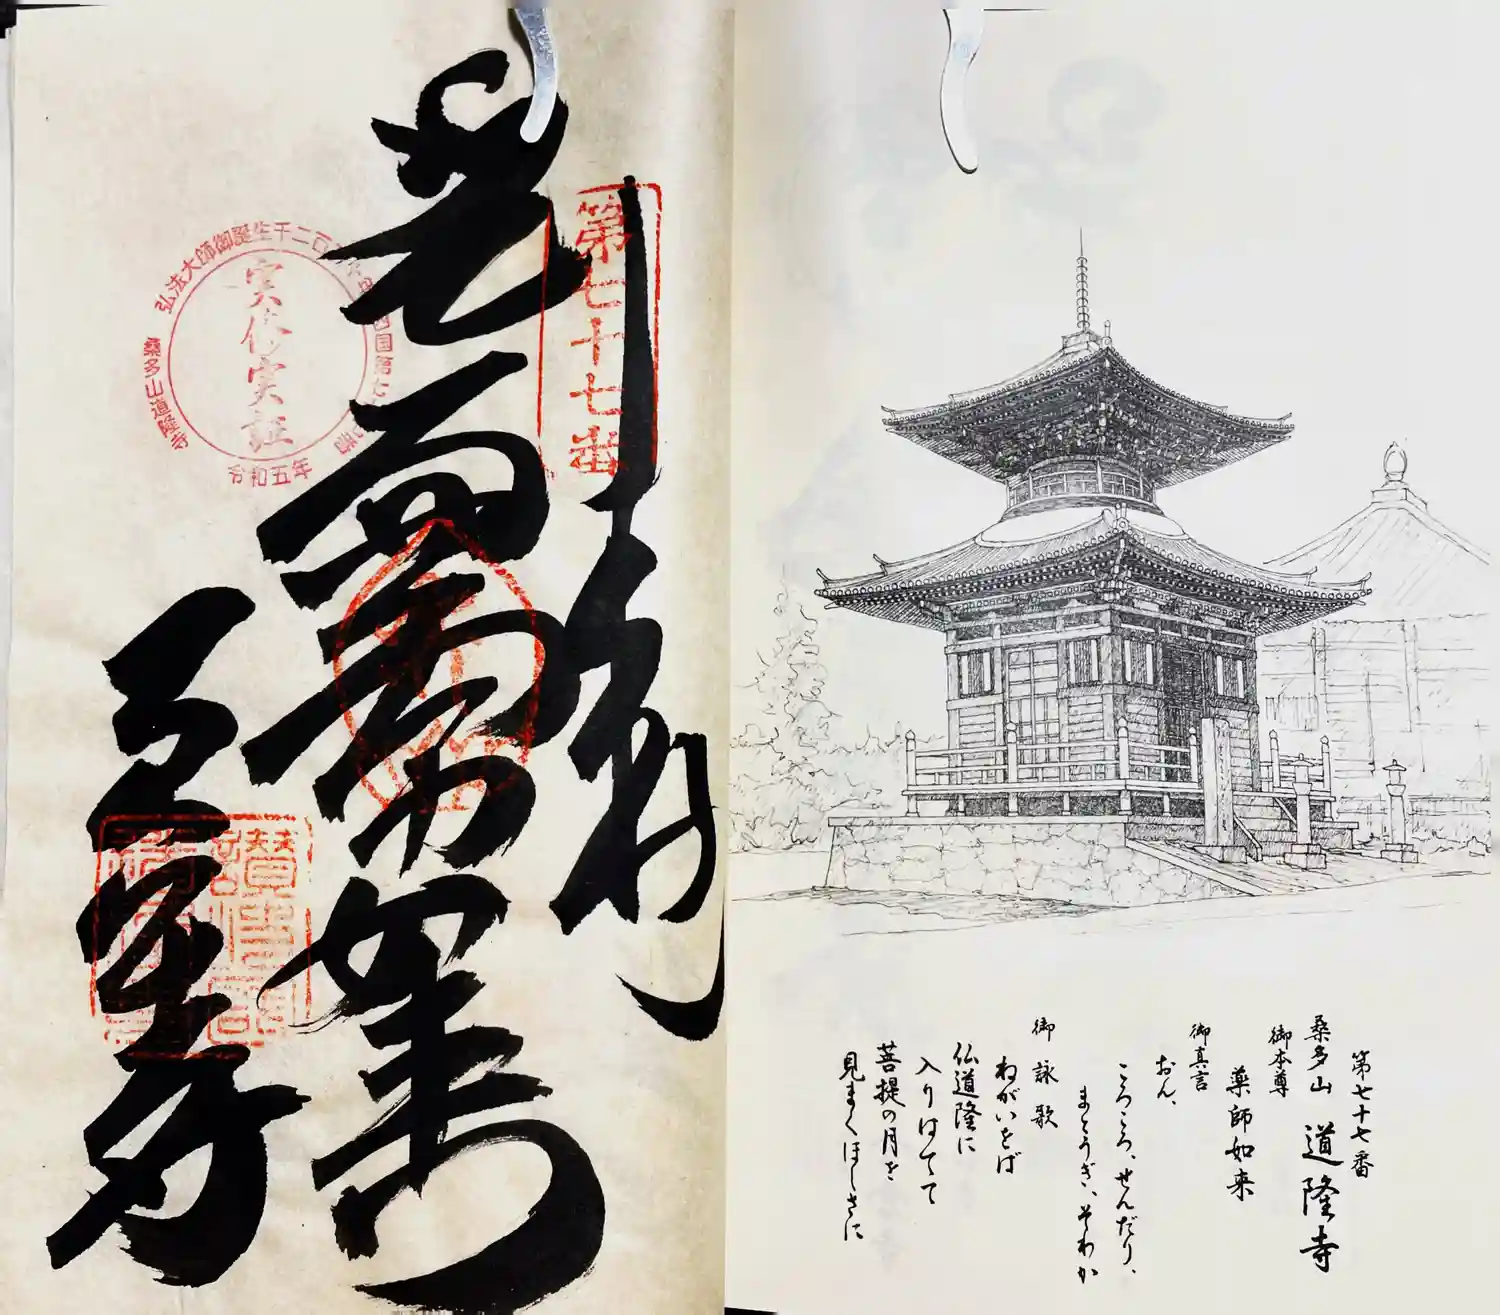 奉納
薬師如来
道隆寺
第七十七番
弘法大師御誕生千二百五十年
四国第七十七番
桑多山道隆寺
令和五年
実修実証
第七十七番
桑多山 道隆寺
御本尊
薬師如来
御真言
おん、
ころころ、せんだり、
まとうぎ、そわか
御詠歌
ねがいをば
仏道隆に
入りはてて
菩提の月を
見まくほしさに